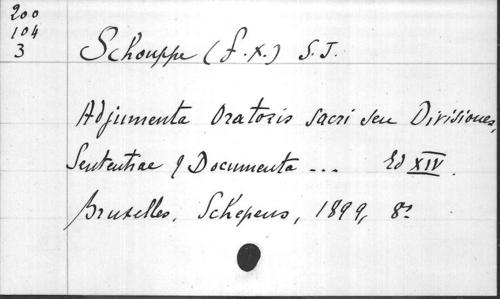 200
104
3
Schouppe (f.x.) S.J.
Adjumenta Oratoris sacri seu Divisiones,
Sententiae & Documenta ... Ed XIV.
Bruxelles, Schepens, 1899, 8º